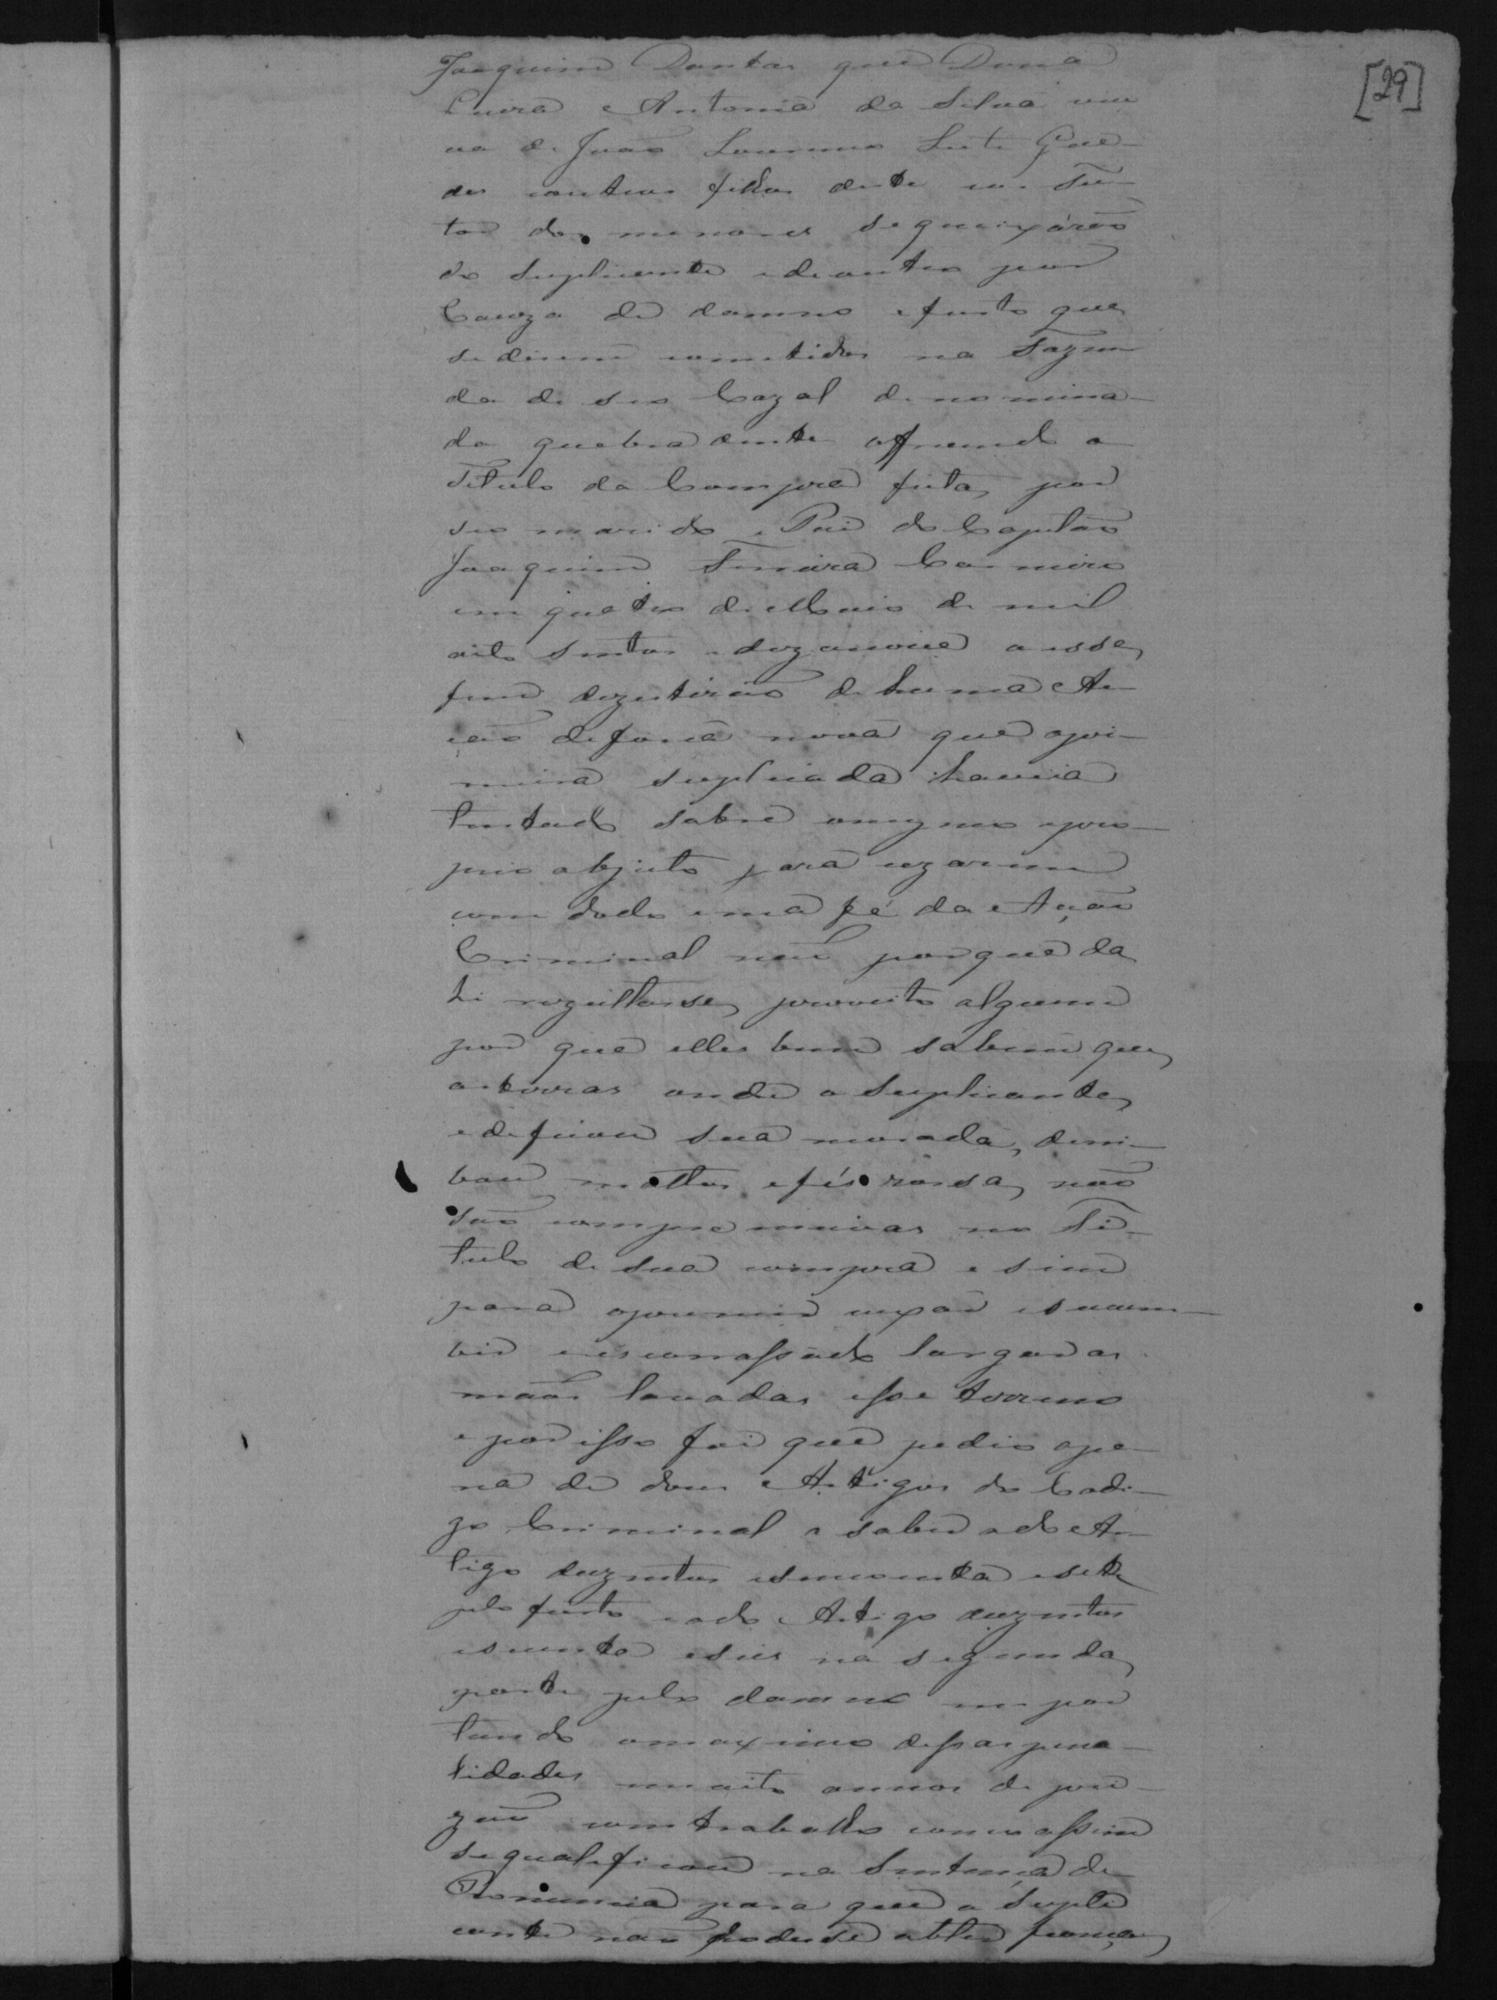 [29]
Joaquim Dantas que Dona
Luiza Antonia da Silva viu
va de João Lourenço Leite Gue-
des eoutros filhos deste eo Tu-
tor dos menores sequeixárão
do Suplicante edeoutro por
Cauza de damno efurto que
sedizem cometidos na Fazen
da de seo Cazal denomina-
da quebra dente offerecendo o
Titulo da Compra feita por
seo marido e Pai do Capitão
Joaquim
em quatro de Maio de mil
oito sentos edezanove aesse
fim dezistirão de huma Ac-
ção de força nova que apri-
meira suplicada havia
tentado sobre omesmo pro-
prio objecto para uzarem
com dolo emá fé da Acção
Criminal não porque da
hi rezultasse proveito algum
por que elles bem sabem que
as terras onde o Suplicante
edeficou sua morada, derri-
bou mattos efés rossa, não
são comprehendidas no Ti-
tulo de sua compra e sim
para oprimir vexar esucum-
bir eisconrassado largar as
mãos lavadas esse terreno
e por isso foi que pedio ape-
na de dous Artigos do Codi-
go Criminal a saber ado Ar-
tigo duzentos esincoenta esete
pelo furto eado Artigo duzentos
esecenta eseis na segunda
parte pelo damno impor
tando omaximo dessas pena-
lidades em oito annos de pri-
zão com trabalho como assim
sequalificou na Sentença de
Pronuncia para que o Supli
cante não podesse obter fiança